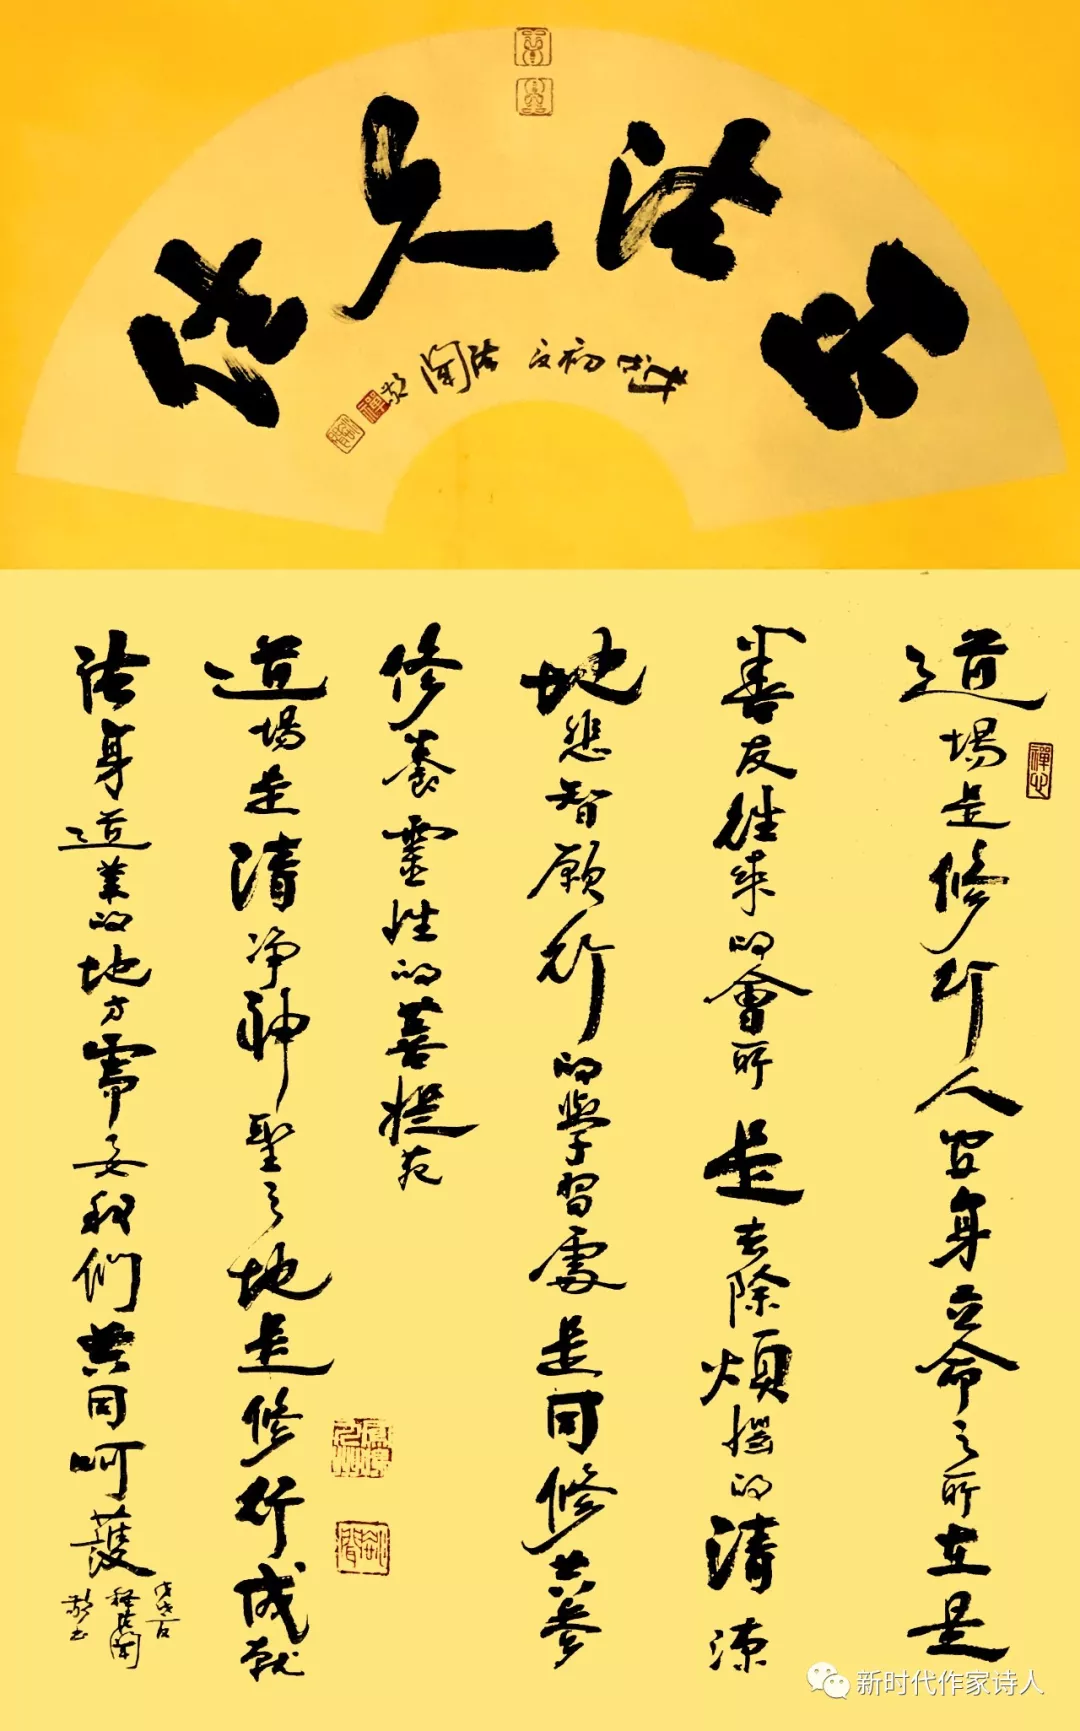 正法久住
初夏 法闻 敬
道場是修行人安身立命之所在是
善友往來的會所是去除煩惱的清涼
地悲智願行的學習處是同修共參
修養靈性的菩提苑
道場是清净神聖之地是修行成就
法身道業的地方需要我們共同呵護
戊戌夏
釋法闻
敬书
禪心
新时代作家诗人